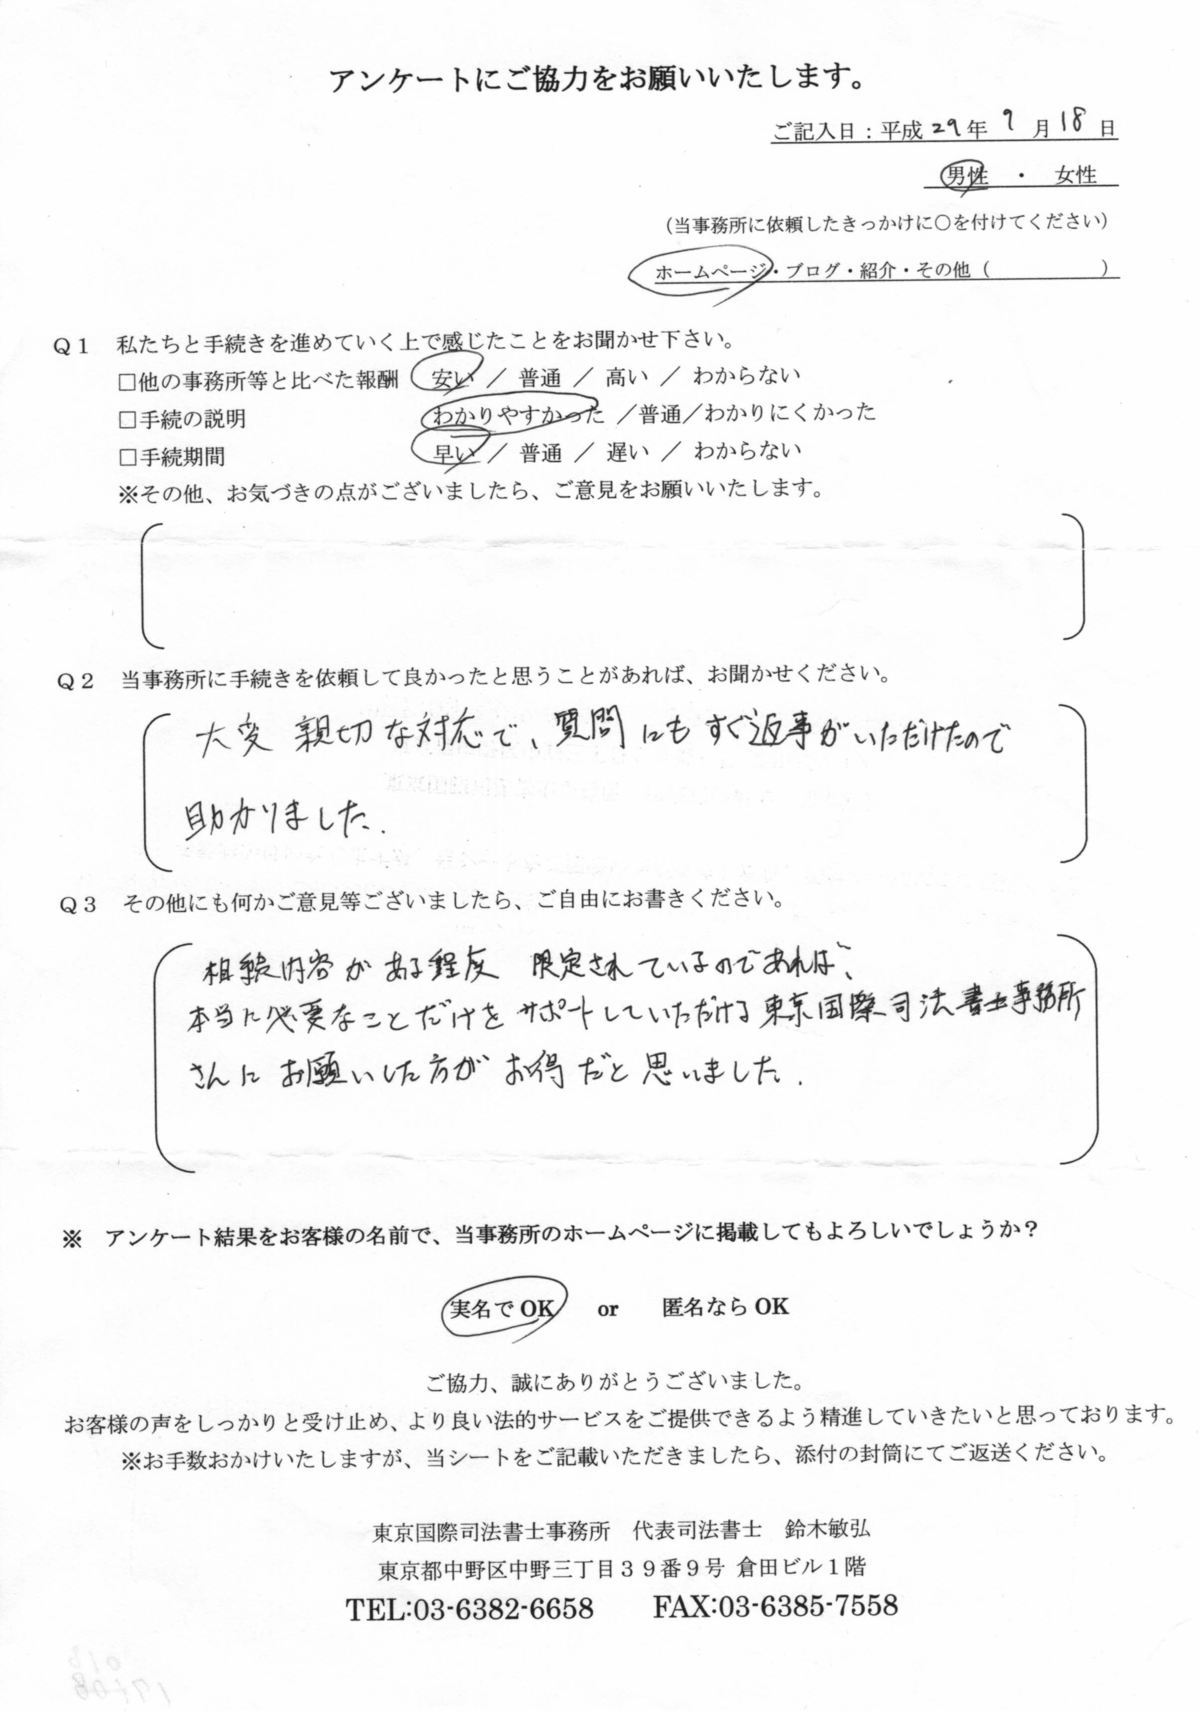 アンケートにご協力をお願いいたします。
ご記入日：平成29年 9月18日
男性 ・ 女性
（当事務所に依頼したきっかけに○を付けてください）
ホームページ・ブログ・紹介・その他（ ）
Ｑ１ 私たちと手続きを進めていく上で感じたことをお聞かせ下さい。
□他の事務所等と比べた報酬 安い ／ 普通 ／ 高い ／ わからない
□手続の説明 わかりやすかった ／普通／わかりにくかった
□手続期間 早い ／ 普通 ／ 遅い ／ わからない
※その他、お気づきの点がございましたら、ご意見をお願いいたします。
Ｑ２ 当事務所に手続きを依頼して良かったと思うことがあれば、お聞かせください。
大変 親切な対応で、質問にもすぐ返事がいただけたので
助かりました.
Ｑ３ その他にも何かご意見等ございましたら、ご自由にお書きください。
相続内容がある程度 限定されているのであれば、
本当に必要なことだけをサポートしていただける東京国際司法書士事務所
さんにお願いした方がお得だと思いました.
※ アンケート結果をお客様の名前で、当事務所のホームページに掲載してもよろしいでしょうか？
実名でOK or 匿名ならOK
ご協力、誠にありがとうございました。
お客様の声をしっかりと受け止め、より良い法的サービスをご提供できるよう精進していきたいと思っております。
※お手数おかけいたしますが、当シートをご記載いただきましたら、添付の封筒にてご返送ください。
東京国際司法書士事務所 代表司法書士 鈴木敏弘
東京都中野区中野三丁目３９番９号 倉田ビル１階
TEL:03-6382-6658 FAX:03-6385-7558